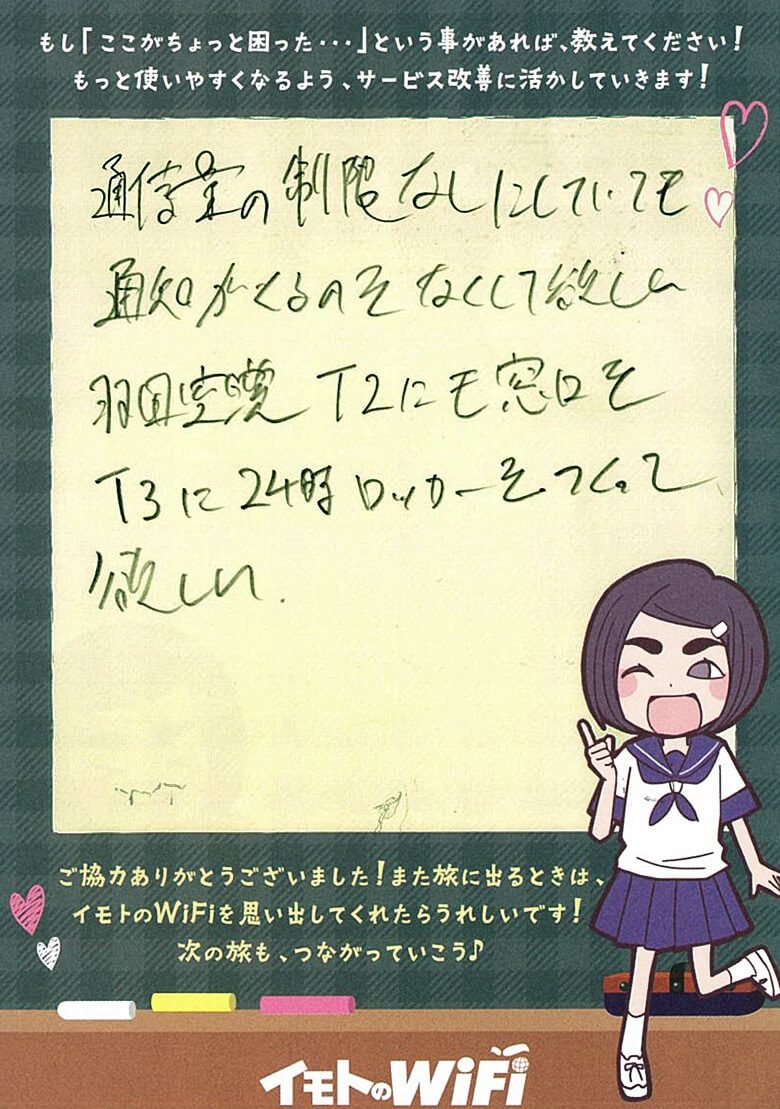 もし「ここがちょっと困った・・・」という事があれば、教えてください!
もっと使いやすくなるよう、サービス改善に活かしていきます!
通信量の制限なしにしていても
通知がくるのをなくして欲しい
羽田空港T2にも窓口を
T3に24時ロッカーをつくって
欲しい.
ご協力ありがとうございました!また旅に出るときは、
イモトのWiFiを思い出してくれたらうれしいです!
次の旅も、つながっていこう♪
イモトのWiFi